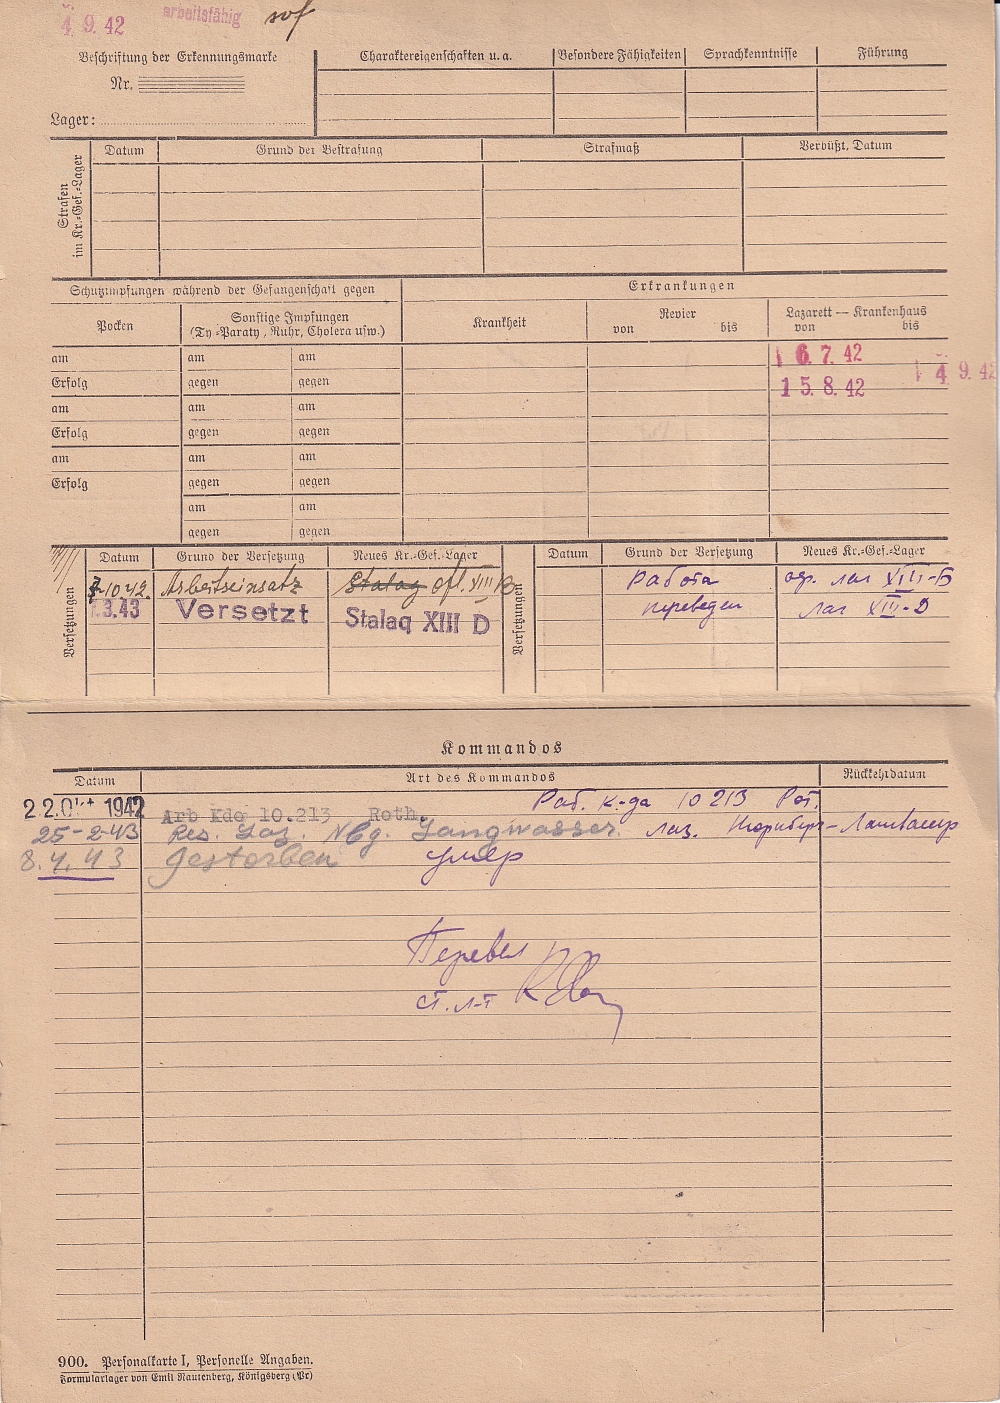 4. 9. 42 arbeitsfähig
Beschriftung der Erkennungsmarke
Nr.
Lager:
Charaktereigenschaften u. a. Besondere Fähigkeiten Sprachkenntnisse Führung
Strafen im Kr.-Gef.-Lager
Datum Grund der Bestrafung Strafmaß Verbüßt, Datum
Schutzimpfungen während der Gefangenschaft gegen Erkrankungen
Pocken Sonstige Impfungen (Ty.-Paraty., Ruhr, Cholera usw.) Krankheit Revier von bis Lazarett — Krankenhaus von bis
am am am 16. 7. 42
Erfolg gegen gegen 15. 8. 42 4. 9. 42
am am am
Erfolg gegen gegen
am am am
Erfolg gegen gegen
am am
gegen gegen
Versetzungen
Datum Grund der Versetzung Neues Kr.-Gef.-Lager
7-10 42. Arbeitseinsatz Stalag Ofl. XIII B
3.43 Versetzt Stalag XIII D
Versetzungen
Datum Grund der Versetzung Neues Kr.-Gef.-Lager
Работа оф. лаг XIII-Б
переведен лаг XIII-D
Kommandos
Datum Art des Kommandos Rückkehrdatum
22. Okt 1942 Arb Kdo 10.213 Roth. Раб. к-да 10 213 Рот.
25-2-43 Res. Laz. Nbg. Langwasser. лаз. Нюрнберг-Лангвассер
8. 4. 43 gestorben умер
Перевел
ст. л-т
900. Personalkarte I, Personelle Angaben.
Formularlager von Emil Rautenberg, Königsberg (Pr)